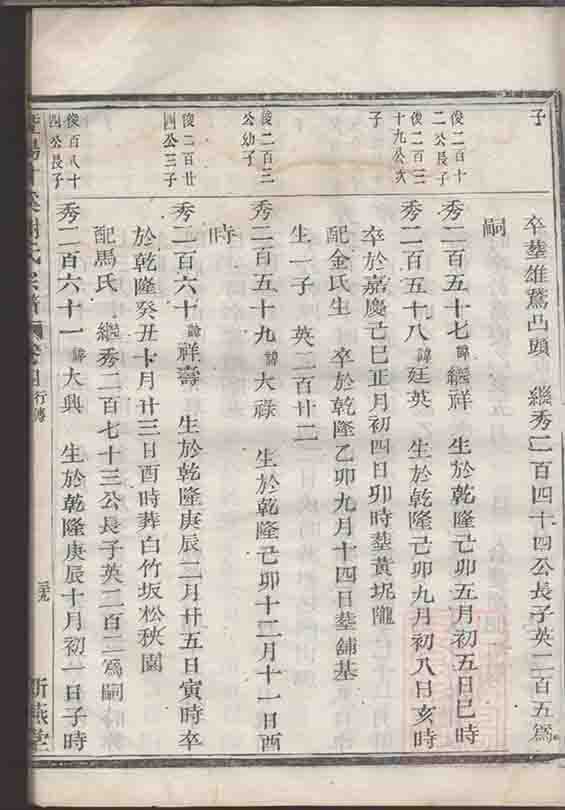 子
卒塟雄鵞凸頭 繼秀二百四十四公長子英二百五爲
嗣
俊二百十
二公長子
秀二百五十七諱繼祥 生於乾隆己卯五月初五日巳時
俊二百三
十九公次
子
秀二百五十八諱廷英 生於乾隆己卯九月初八日亥時
卒於嘉慶己巳正月初四日卯時塟黃坭隴
配金氏生 卒於乾隆乙卯九月十四日塟舖基
生一子 英二百廿二
俊二百三
公幼子
秀二百五十九諱大祿 生於乾隆己卯十二月十一日酉
時
俊二百廿
四公三子
秀二百六十諱祥壽 生於乾隆庚辰二月廿五日寅時卒
於乾隆癸丑十月廿三日酉時葬白竹坂松秧園
配馬氏 繼秀二百七十三公長子英二百二爲嗣
俊百八十
四公長子
秀二百六十一諱大興 生於乾隆庚辰十月初一日子時
氏宗譜 行傳 三十九